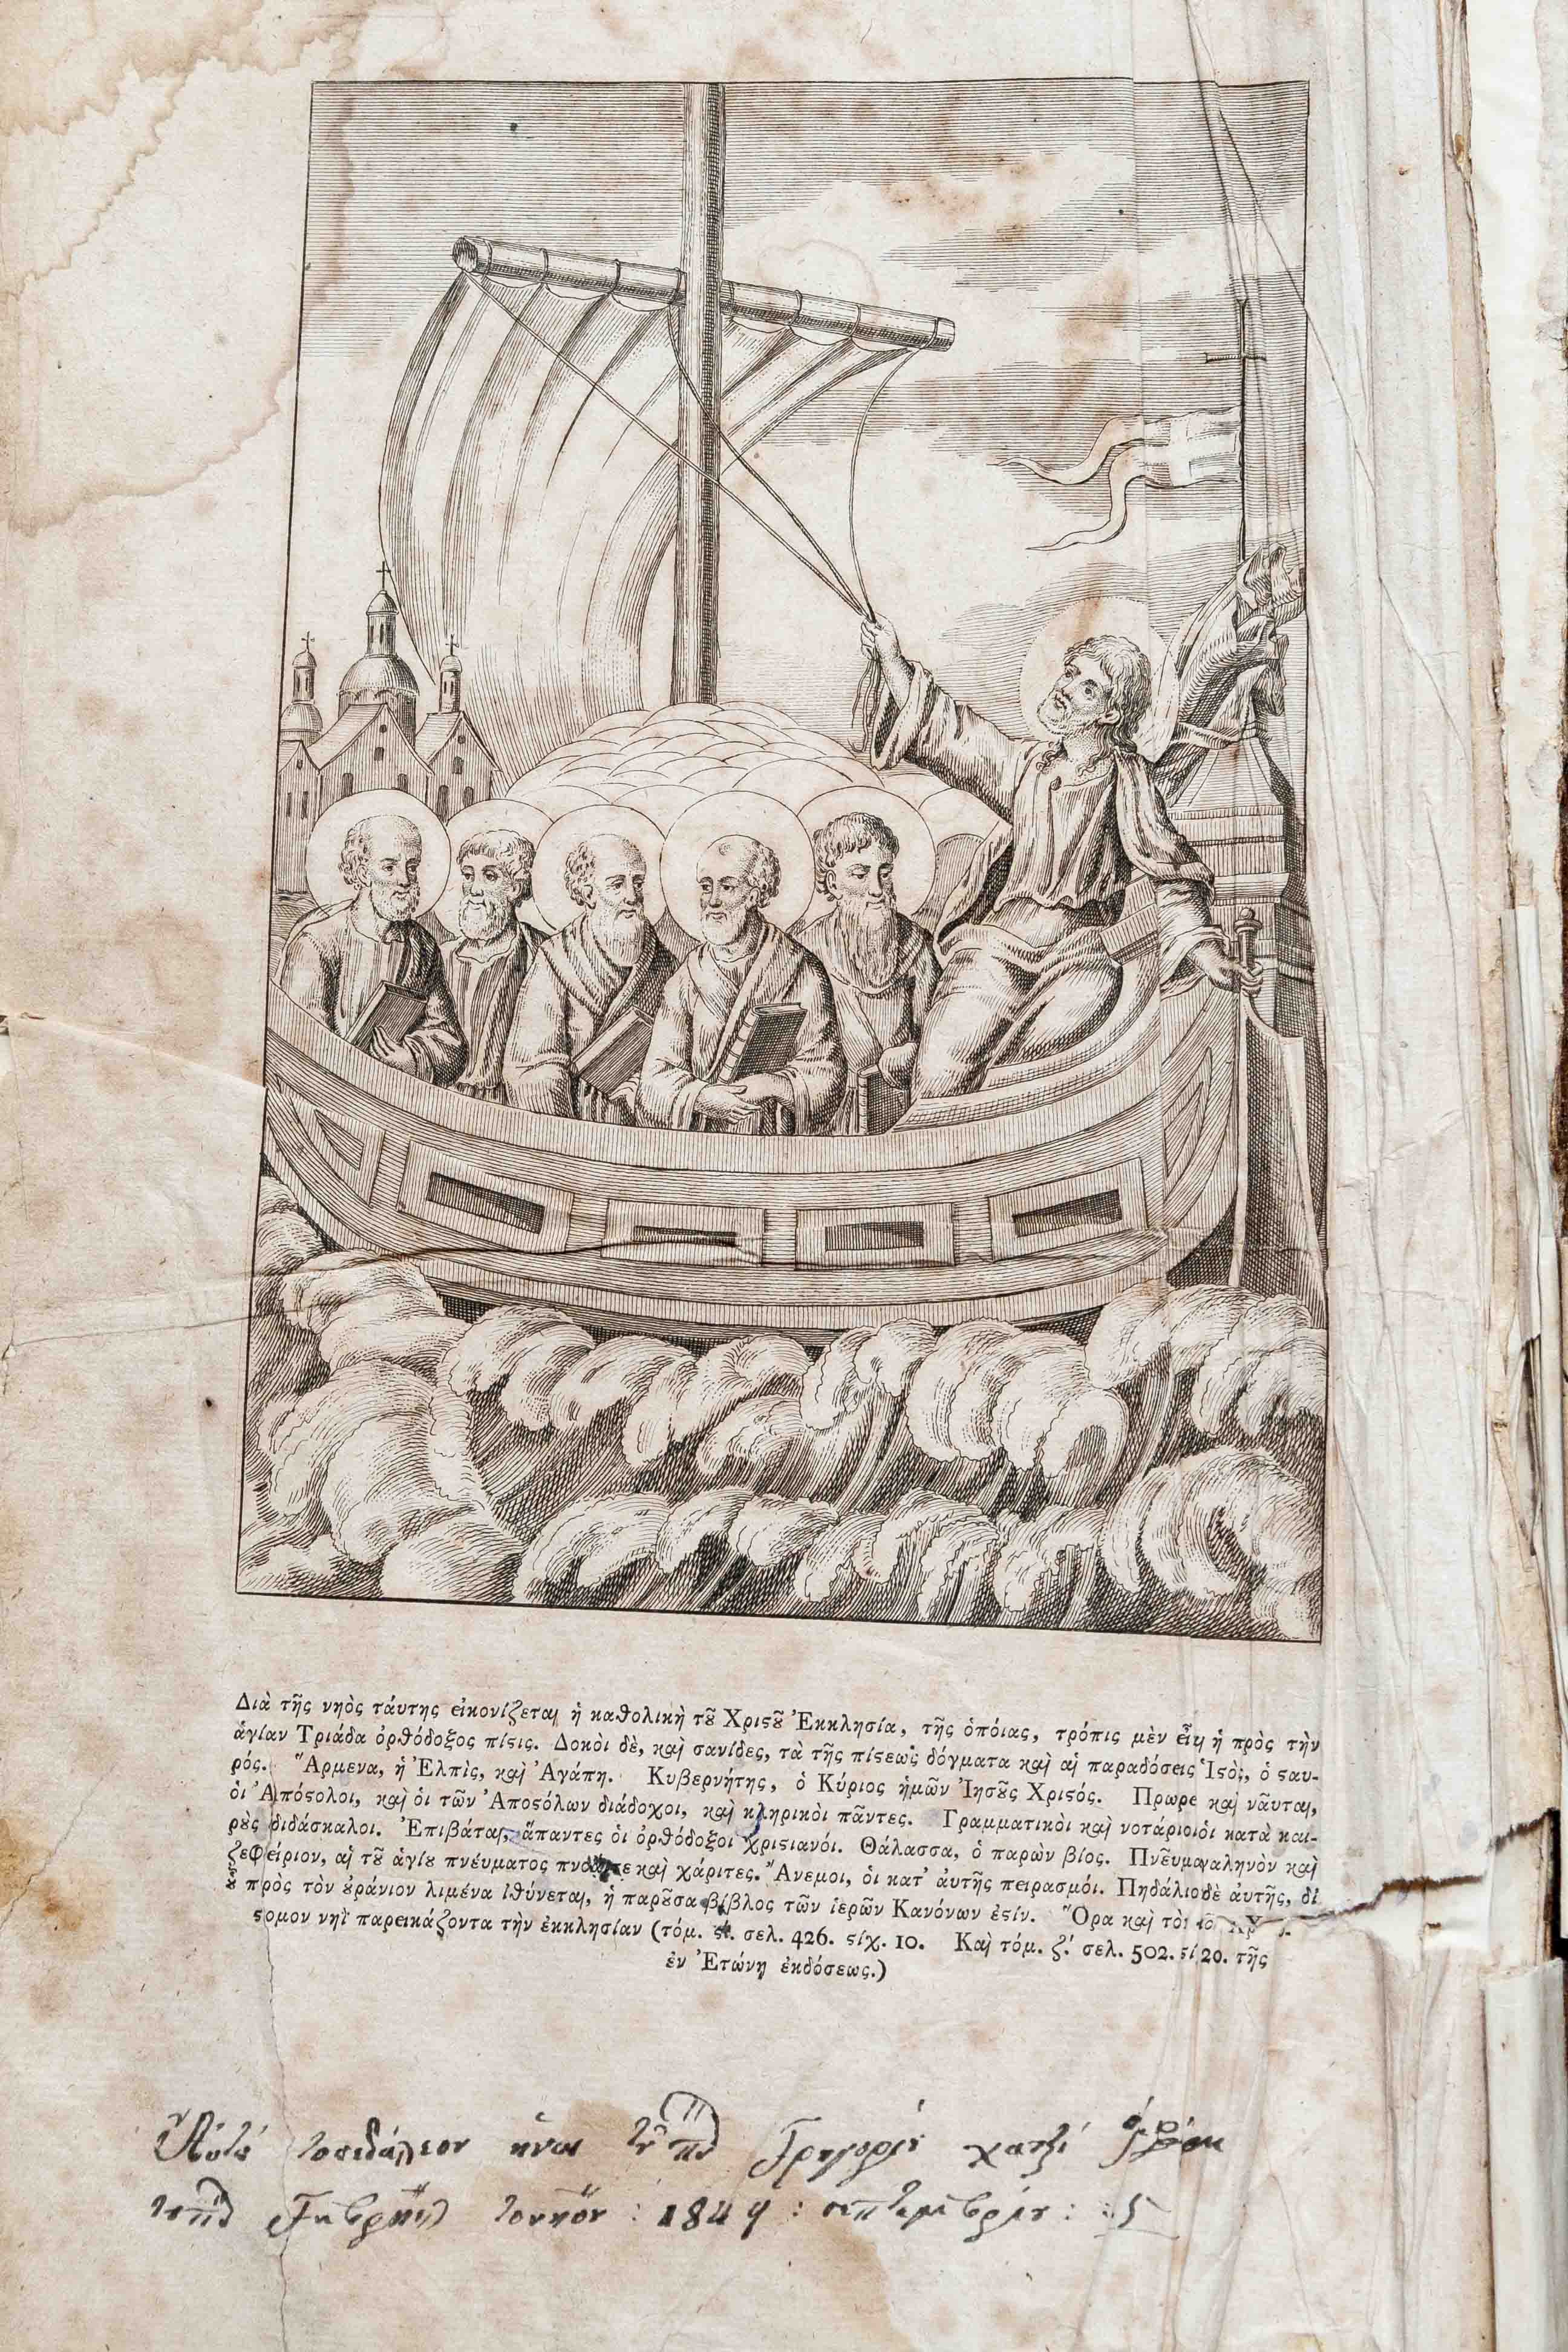 Διὰ τῆς νηὸς τάυτης εἰκονίζεται ἡ καθολικὴ τȣ͂ Χριϛȣ͂ Ἐκκλησία, τῆς ὁπόιας, τρόπις μὲν εἶναι ἡ πρὸς τὴν
ἁγίαν Τριάδα ὀρθόδοξος πίϛις. Δοκοὶ δὲ, καὶ σανίδες, τὰ τῆς πίϛεως δόγματα καὶ αἱ παραδόσεις Ἱϛὸς, ὁ ϛαυ-
ρός. Ἄρμενα, ἡ Ἐλπὶς, καὶ Ἀγάπη. Κυβερνήτης, ὁ Κύριος ἡμῶν Ἰησȣ͂ς Χριϛός. Πρωρε καὶ νᾶυται,
ὁι Ἀπόϛολοι, καὶ ὁι τῶν Ἀποϛόλων διάδοχοι, καὶ κληρικὸι πᾶντες. Γραμματικὸι καὶ νοτάριοι ὁι κατὰ και-
ρȣ̀ς διδάσκαλοι. Ἐπιβάται, ἅπαντες ὁι ὀρθόδοξοι χριϛιανόι. Θάλασσα, ὁ παρὼν βίος. Πνεῦμα γαληνὸν καὶ
ζεφέιριον, αἱ τȣ͂ ἁγίȣ πνέυματος πνοάι τε καὶ χάριτες. Ἄνεμοι, ὁι κατ' ἀυτῆς πειρασμόι. Πηδάλιο δὲ ἀυτῆς, δἰ
ȣ̔͂ πρὸς τὸν ȣ̓ράνιον λιμένα ἰθύνεται, ἡ παρȣ͂σα βίβλος τῶν ἱερῶν Κανόνων ἐϛίν. Ὅρα καὶ τὸν
ϛομον νηῒ παρεικάζοντα τὴν ἐκκλησίαν (τόμ. σελ. 426. ϛίχ. 10. Καὶ τόμ. ζ. σελ. 502. ϛί 20. τῆς
ἐν Ἐτώνῃ ἐκδόσεως.)
Αὐτὸ τοπιδάλεον ηναι τȣ Γρηγορίȣ χατζί
1849 : σεπτεμβρίȣ : 5